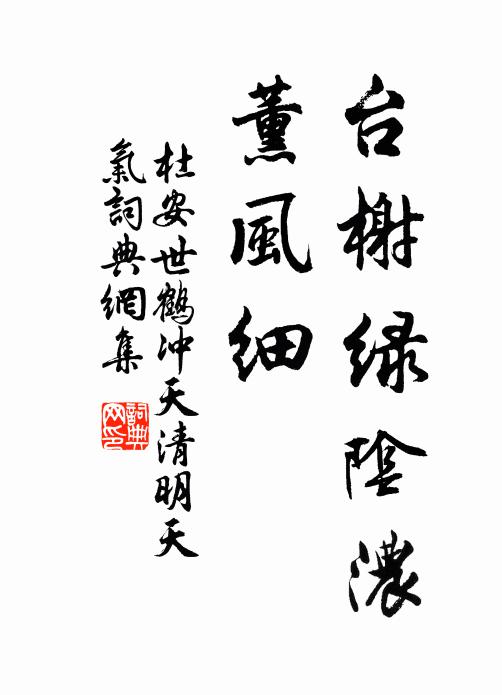 台榭緑陰濃
薰風細
杜安世鶴冲天清明天
氣詞典網集
詞典网印